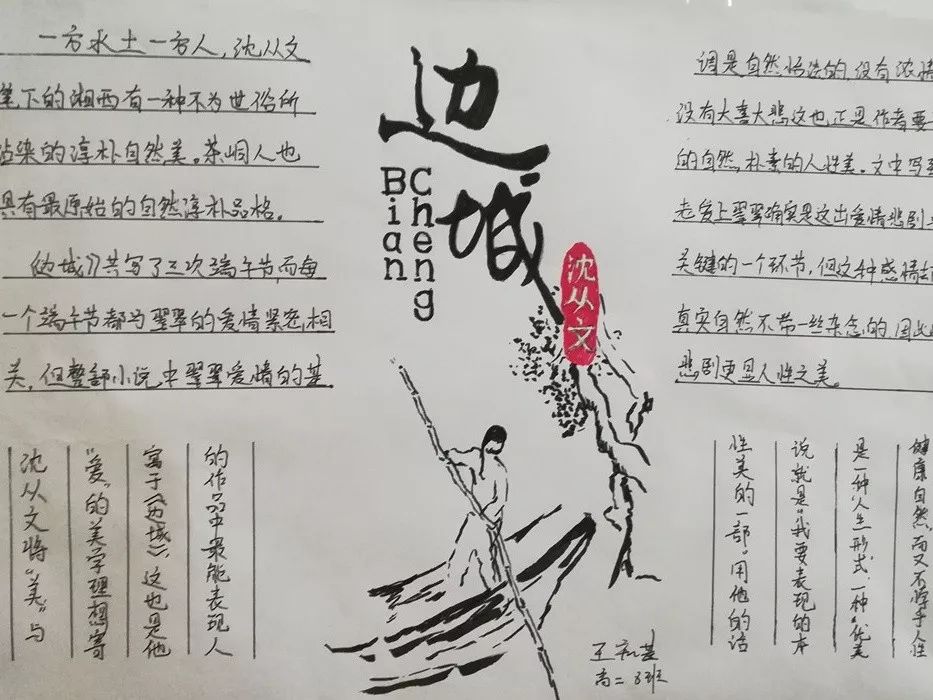 一方水土一方人,沈从文
笔下的湘西有一种不为世俗所
沾染的淳朴自然美。茶峒人也
具有最原始的自然淳朴品格。
《边城》共写了三次端午节而每
一个端午节都与翠翠的爱情紧密相
关,但整部小说中翠翠爱情的基
边城
Bian
Cheng
沈从文
调是自然恬淡的,没有浓情
没有大喜大悲这也正是作者要
的自然,朴素的人性美。文中写到
老爱上翠翠确实是这出爱情悲剧
关键的一个环节,但这种感情
真实自然不带一丝杂念的,因此
悲剧更显人性之美。
沈从文将“美”与
“爱”的美学理想寄
寓于《边城》,这也是他
的作品中最能表现人
性美的一部。用他的话
说就是“我要表现的本
是一种‘人生形式’,一种‘优美
健康自然,而又不悖乎人性
高二 3班